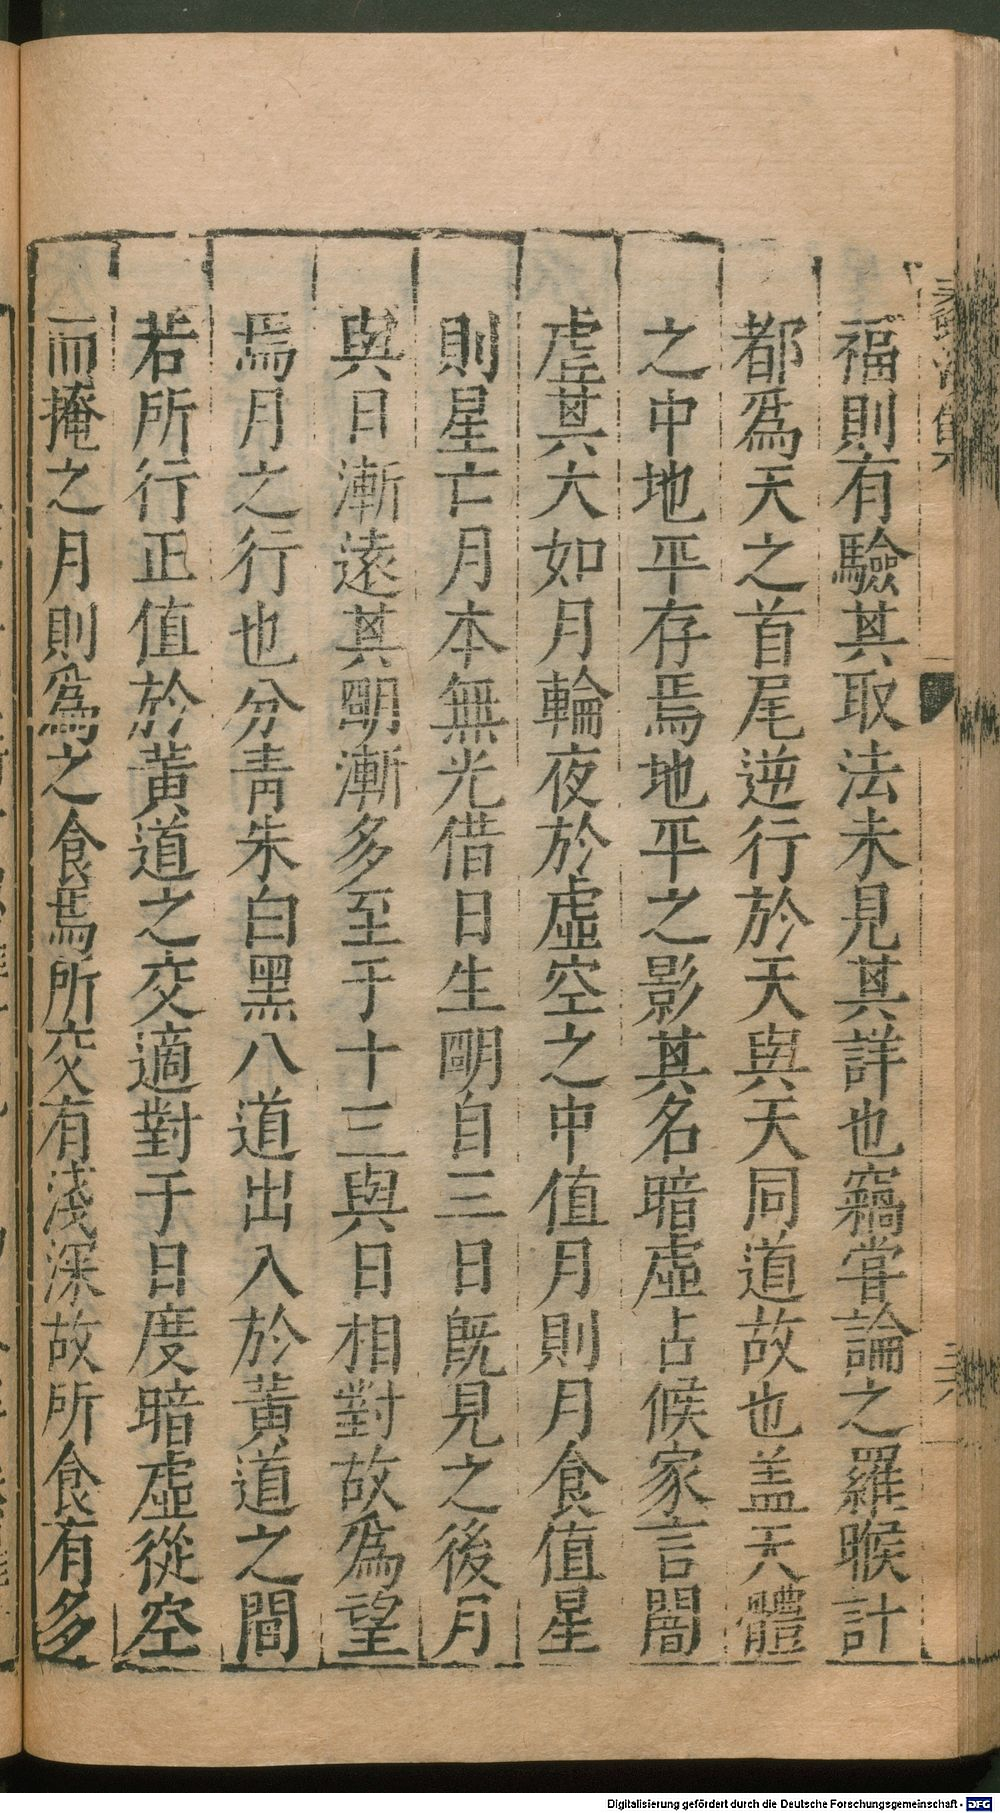 福則有驗其取法未見其詳也竊嘗論之羅睺計
都爲天之首尾逆行於天與天同道故也盖天體
之中地平存焉地平之影其名暗虛占候家言闇
虛其大如月輪夜於虛空之中值月則月食值星
則星亡月本無光借日生明自三日旣見之後月
與日漸遠其明漸多至于十三與日相對故爲望
焉月之行也分靑朱白黑八道出入於黃道之間
若所行正值於黃道之交適對于日度暗虛從空
而掩之月則爲之食焉所交有淺深故所食有多
Digitalisierung gefördert durch die Deutsche Forschungsgemeinschaft - DFG